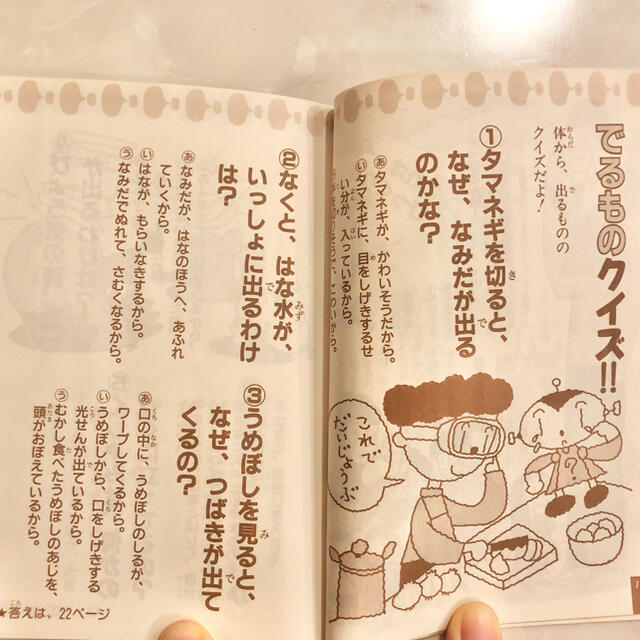 でるものクイズ!!
体から、出るものの
クイズだよ!
①タマネギを切ると、
なぜ、なみだが出る
のかな?
あタマネギが、かわいそうだから。
いタマネギに、目をしげきするせ
い分が、入っているから。
これで
だいじょうぶ
②なくと、はな水が、
いっしょに出るわけ
は?
あなみだが、はなのほうへ、あふれ
ていくから。
いはなが、もらいなきするから。
うなみだでぬれて、さむくなるから。
③うめぼしを見ると、
なぜ、つばきが出て
くるの?
あ口の中に、うめぼしのしるが、
ワープしてくるから。
いうめぼしから、口をしげきする
光せんが出ているから。
うむかし食べたうめぼしのあじを、
頭がおぼえているから。
★答えは、22ページ